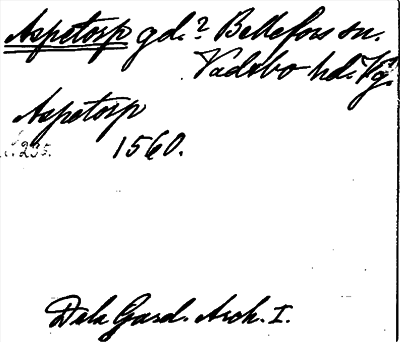 Aspetorp gd.? Bellefors sn.
Vadsbo hd. Vg.
Aspetorp
1560.
Dela Gard. Arch. I.